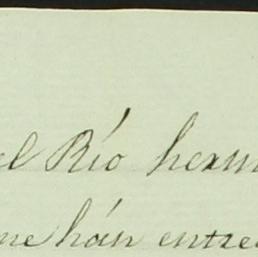 el Río herm
me hán entre